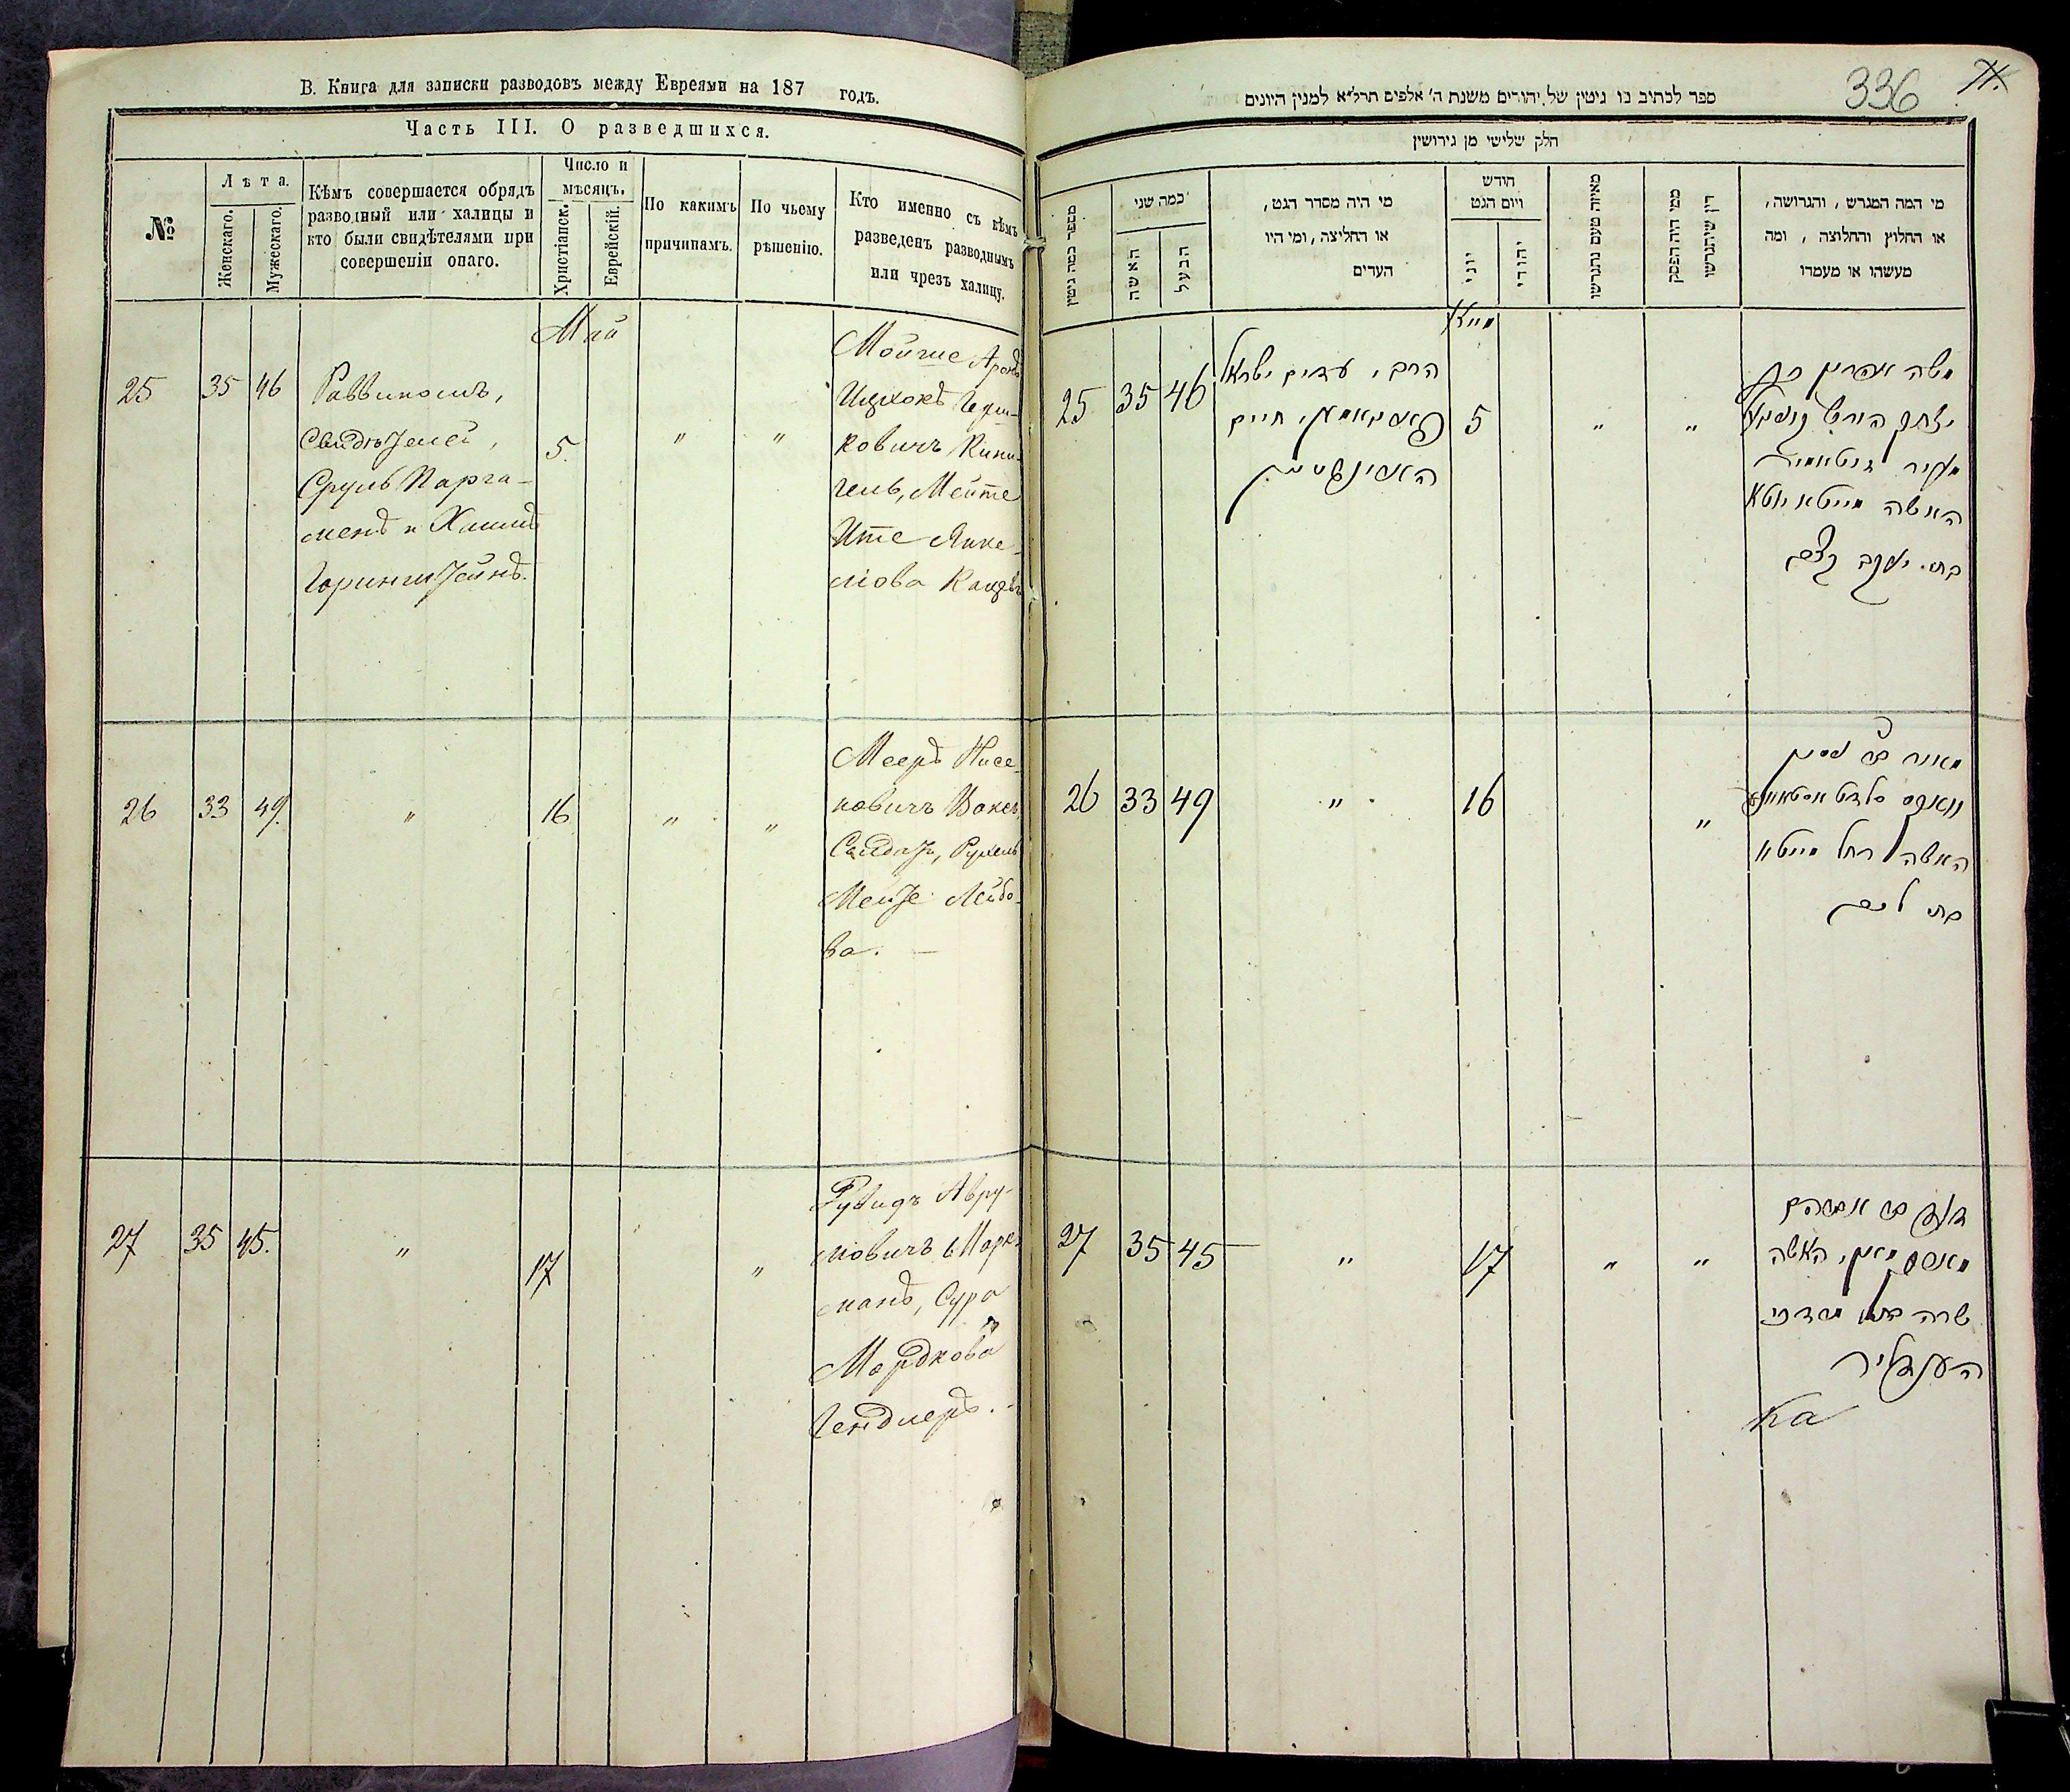 В. Книга для записки разводовъ между Евреями на 187 годъ.
Часть III. О разведшихся.
№
Лѣта.
Женскаго.
Мужескаго.
Кѣмъ совершается обрядъ
разводный или халицы и
кто были свидѣтелями при
совершеніи онаго.
Число и
мѣсяцъ.
Христіанск.
Еврейскій.
По какимъ
причинамъ.
По чьему
рѣшенію.
Кто именно съ кѣмъ
разведенъ разводнымъ
или чрезъ халицу.
Май
25 35 46
Раввиномъ,
Свидѣтелей,
Сруль Парга-
менъ и Хаимъ
Горинштейнъ.
5.
" "
Мойше Аронъ
Ицхокъ Герш-
ковичъ
Мейте
Ите Янке-
лiова
26 33 49. " 16 " "
Мееръ Нисе-
новичъ Ваксъ
Солдатъ, Рухель
Мейте Лейбо-
ва. —
27 35 45. " 17 "
Дувидъ Авру-
мовичъ
манъ, Сура
Мордкова
Гендлеръ. -
336
ספר לכתיב בו גיטין של יהודים משנת ה' אלפים תרל״א למנין היונים
חלק שלישי מן גירושין
מספר כמה גיטין
כמה שני
האשה
הבעל
מי היה מסדר הגט,
או החליצה, ומי היו
העדים
חודש
ויום הגט
יוני
יהודי
מאיזה טעם נתגרשו
ממי היה הפסק
דין שיתגרשו
מי המה המגרש, והגרושה,
או החלוץ והחלוצה, ומה
מעשהו או מעמדו
מייא
25 35 46
הרב, עדים ישראל
חיים
5 " "
משה אהרן
יצחק הירש
האשה מייטא יוטא
בת יעקב
26 33 49 " 16 "
מאיר בן ניסן
וואקס סלדט
האשה רחל מייטא
בת ליב
27 35 45 " 17 " "
דוד בן אברהם
האשה
שרה בת מרדכי
הענדליר
ка